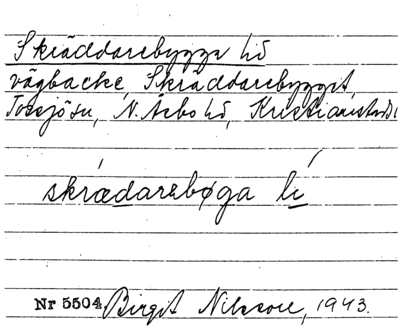 Skräddarebygge li
vägbacke, Skräddarebygget,
Tossjösu, N. Åsbo hd, Kristianstads l
skrædarebøga li
Nr 5504. Birgit Nilsson, 1943.